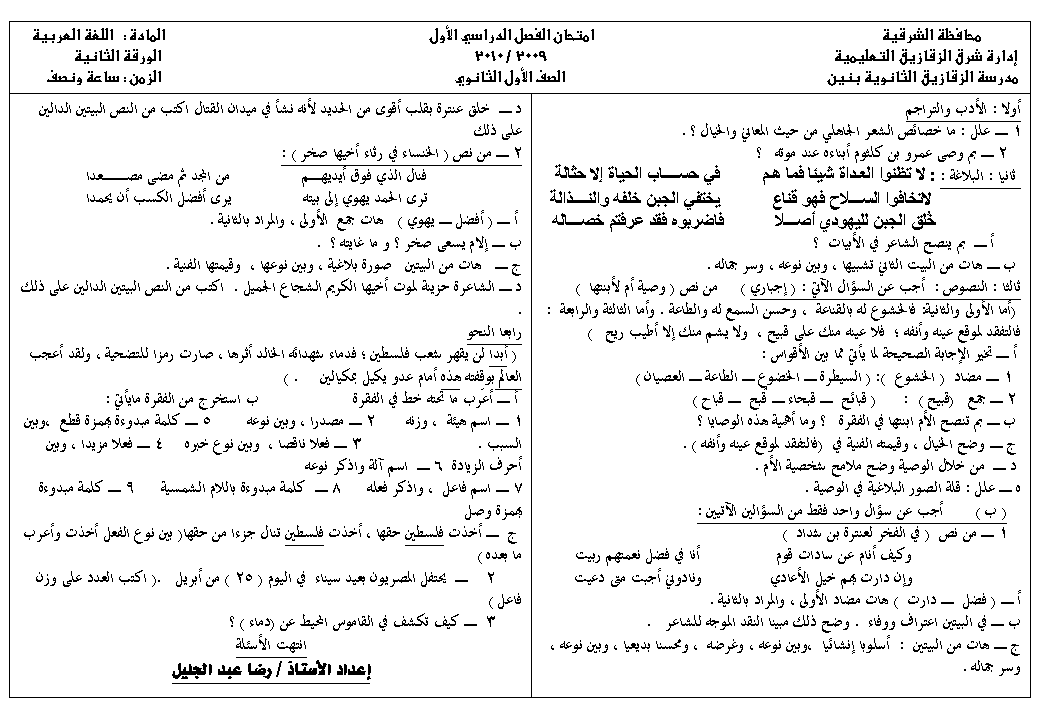 محافظة الشرقية
إدارة شرق الزقازيق التعليمية
مدرسة الزقازيق الثانوية بنين
امتحان الفصل الدراسي الأول
٢٠٠٩ / ٢٠١٠
الصف الأول الثانوي
المادة : اللغة العربية
الورقة الثانية
الزمن : ساعة ونصف
أولا : الأدب والتراجم
١ ــ علل : ما خصائص الشعر الجاهلي من حيث المعاني والخيال ؟ .
٢ ــ بم وصى عمرو بن كلثوم أبناءه عند موته ؟
ثانيا : البلاغة : : لا تظنوا العداة شيئا فما هم في حســـاب الحياة إلا حثالة
لاتخافوا الســلاح فهو قناع يختفي الجبن خلفه والنــذالة
خُلق الجبن لليهودي أصـــلا فاضربوه فقد عرفتم خصـــاله
أ ــ بم ينصح الشاعر في الأبيات ؟
ب ــ هات من البيت الثاني تشبيها ، وبين نوعه ، وسر جماله .
ثالثا : النصوص : أجب عن السؤال الآتي : ( إجباري ) من نص ( وصية أم لأبنتها )
(أما الأولى والثانية: فالخشوع له بالقناعة ، وحسن السمع له والطاعة . وأما الثالثة والرابعة :
فالتفقد لموقع عينه وأنفه ؛ فلا عينه منك على قبيح ، ولا يشم منك إلا أطيب ريح )
أ ــ تخير الإجابة الصحيحة لما يأتي مما بين الأقواس :
١ ــ مضاد ( الخشوع ) : ( السيطرة ــ الخضوع ــ الطاعة ــ العصيان )
٢ ــ جمع (قبيح ) : ( قبائح ــ قبحاء ــ قبح ــ قباح )
ب ــ بم تنصح الأم ابنتها في الفقرة ؟ وما أهمية هذه الوصايا ؟
ج ــ وضح الخيال ، وقيمته الفنية في (فالتفقد لموقع عينه وأنفه ) .
د ــ من خلال الوصية وضح ملامح شخصية الأم .
٥ ــ علل : قلة الصور البلاغية في الوصية .
( ب ) أجب عن سؤال واحد فقط من السؤالين الآتيين :
١ ــ من نص ( في الفخر لعنترة بن شداد )
وكيف أنام عن سادات قوم أنا في فضل نعمتهم ربيت
وإن دارت بهم خيل الأعادي ونادوني أجبت متى دعيت
أ ــ ( فضل ــ دارت ) هات مضاد الأولى ، والمراد بالثانية .
ب ــ في البيتين اعتراف ووفاء . وضح ذلك مبينا النقد الموجه للشاعر .
ج ــ هات من البيتين : أسلوبا إنشائيا ،وبين نوعه ، وغرضه ، ومحسنا بديعيا ، وبين نوعه ،
وسر جماله .
د ــ خلق عنترة بقلب أقوى من الحديد لأنه نشأ في ميدان القتال اكتب من النص البيتين الدالين
على ذلك
٢ ــ من نص ( الخنساء في رثاء أخيها صخر ) :
فنال الذي فوق أيديهـــم من المجد ثم مضى مصــعدا
ترى الحمد يهوي إلى بيته يرى أفضل الكسب أن يحمدا
أ ــ ( أفضل ــ يهوي ) هات جمع الأولى ، والمراد بالثانية .
ب ــ إلام يسعى صخر ؟ و ما غايته ؟ .
ج ــ هات من البيتين صورة بلاغية ، وبين نوعها ، وقيمتها الفنية .
د ــ الشاعرة حزينة لموت أخيها الكريم الشجاع الجميل . اكتب من النص البيتين الدالين على ذلك
.
رابعا النحو
( أبدا لن يقهر شعب فلسطين ؛ فدماء شهدائه الخالد أثرها ، صارت رمزا للتضحية ، ولقد أعجب
العالم بوقفته هذه أمام عدو يكيل بمكيالين . )
أ ــ أعرب ما تحته خط في الفقرة ب استخرج من الفقرة مايأتي :
١ ــ اسم هيئة ، وزنه ٢ ــ مصدرا ، وبين نوعه ٥ ــ كلمة مبدوءة بهمزة قطع ،وبين
السبب . ٣ ــ فعلا ناقصا ، وبين نوع خبره ٤ ــ فعلا مزيدا ، وبين
أحرف الزيادة ٦ ــ اسم آلة واذكر نوعه
٧ ــ اسم فاعل ، واذكر فعله ٨ ــ كلمة مبدوءة باللام الشمسية ٩ ــ كلمة مبدوءة
بهمزة وصل
ج ــ أخذت فلسطين حقها ، أخذت فلسطين تنال جزءا من حقها( بين نوع الفعل أخذت وأعرب
ما بعده )
٢ ــ يحتفل المصريون بعيد سيناء في اليوم ( ٢٥ ) من أبريل .( اكتب العدد على وزن
فاعل )
٣ ــ كيف تكشف في القاموس المحيط عن (دماء ) ؟
انتهت الأسئلة
إعداد الأستاذ / رضا عبد الجليل